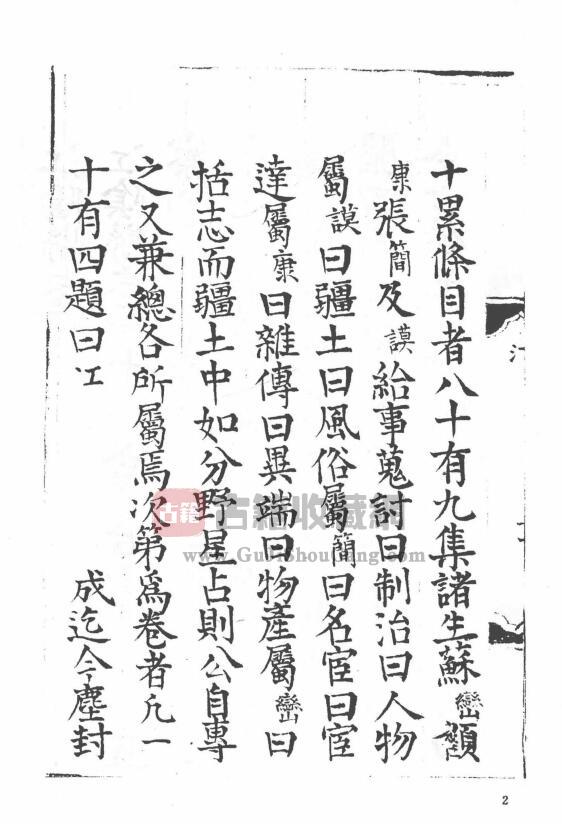 十累條目者八十有九集諸生蘇巒
康張簡及謨給事蒐討曰制治曰人物
屬謨曰疆土曰風俗屬簡曰名宦曰宦
達屬康曰雜傳曰異端曰物產屬巒曰
括志而疆土中如分野星占則公自專
之又兼總各所屬焉次第爲卷者凡一
十有四題曰江　成迄今塵封
古籍
古籍收藏網
www.GuJiShouCang.com
2